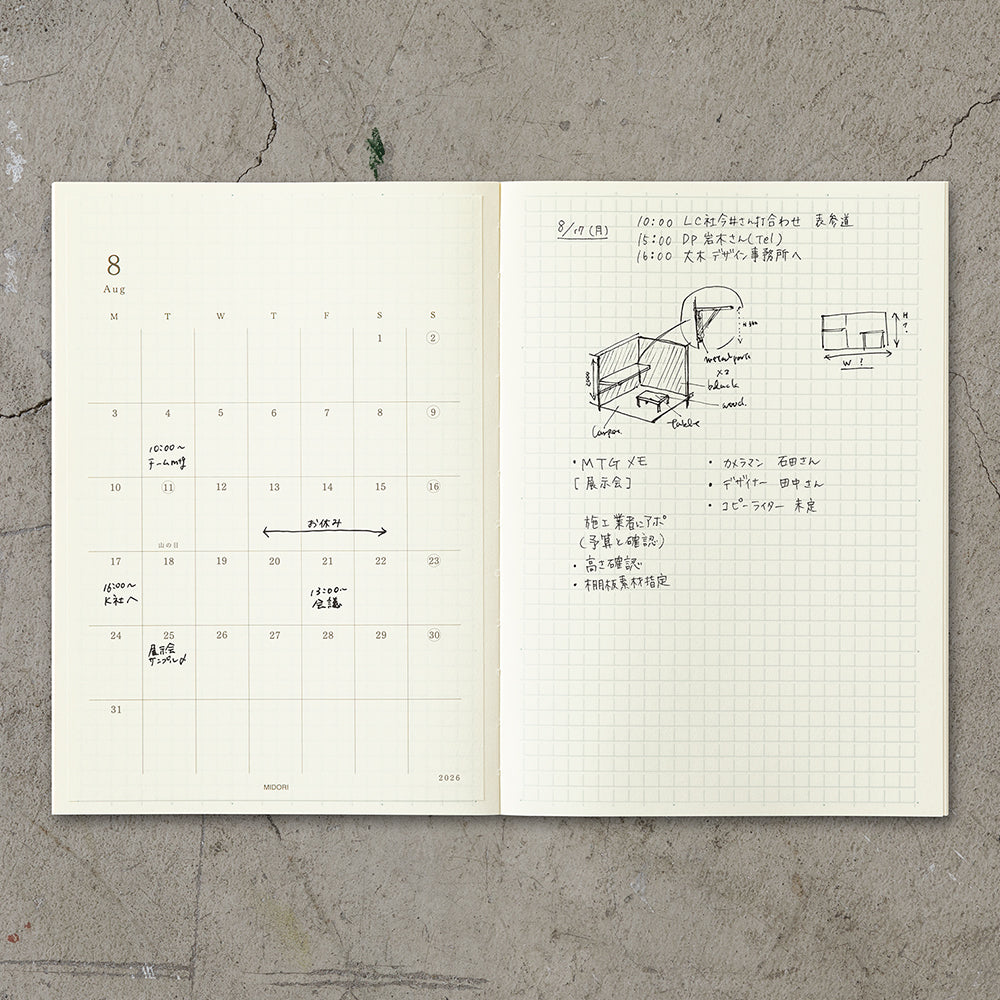 8
Aug
M T W T F S S
1 2
3 4 5 6 7 8 9
10:00〜
チームmtg
10 11 12 13 14 15 16
お休み
山の日
17 18 19 20 21 22 23
16:00〜
K社へ
13:00〜
会議
24 25 26 27 28 29 30
展示会
サンプル〆
31
2026
MIDORI
8/17 (月)
10:00 LC社今井さん打合わせ 表参道
15:00 DP 岩木さん(Tel)
16:00 大木デザイン事務所へ
metal
x2
black
wood.
table
H ?
W ?
・MTG メモ
[展示会]
施工業者にアポ
(予算と確認)
・高さ確認
・棚板素材指定
・カメラマン 石田さん
・デザイナー 田中さん
・コピーライター 未定